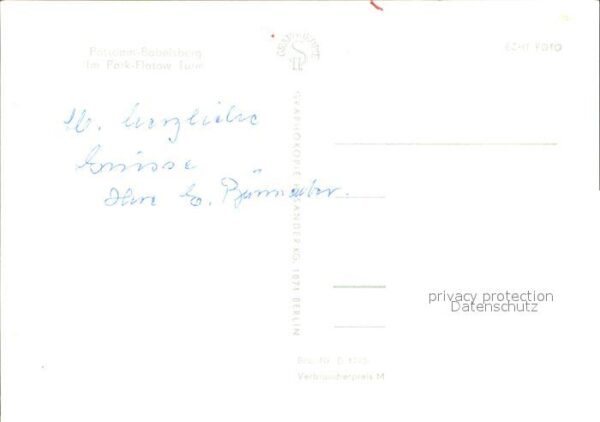 Potsdam-Babelsberg
Im Park-Flatow Turm
ECHT FOTO
herzliche
Grüsse
GRAPHOKOPIE H. SANDER KG, 1071 BERLIN
privacy protection
Datenschutz
Verbraucherpreis M